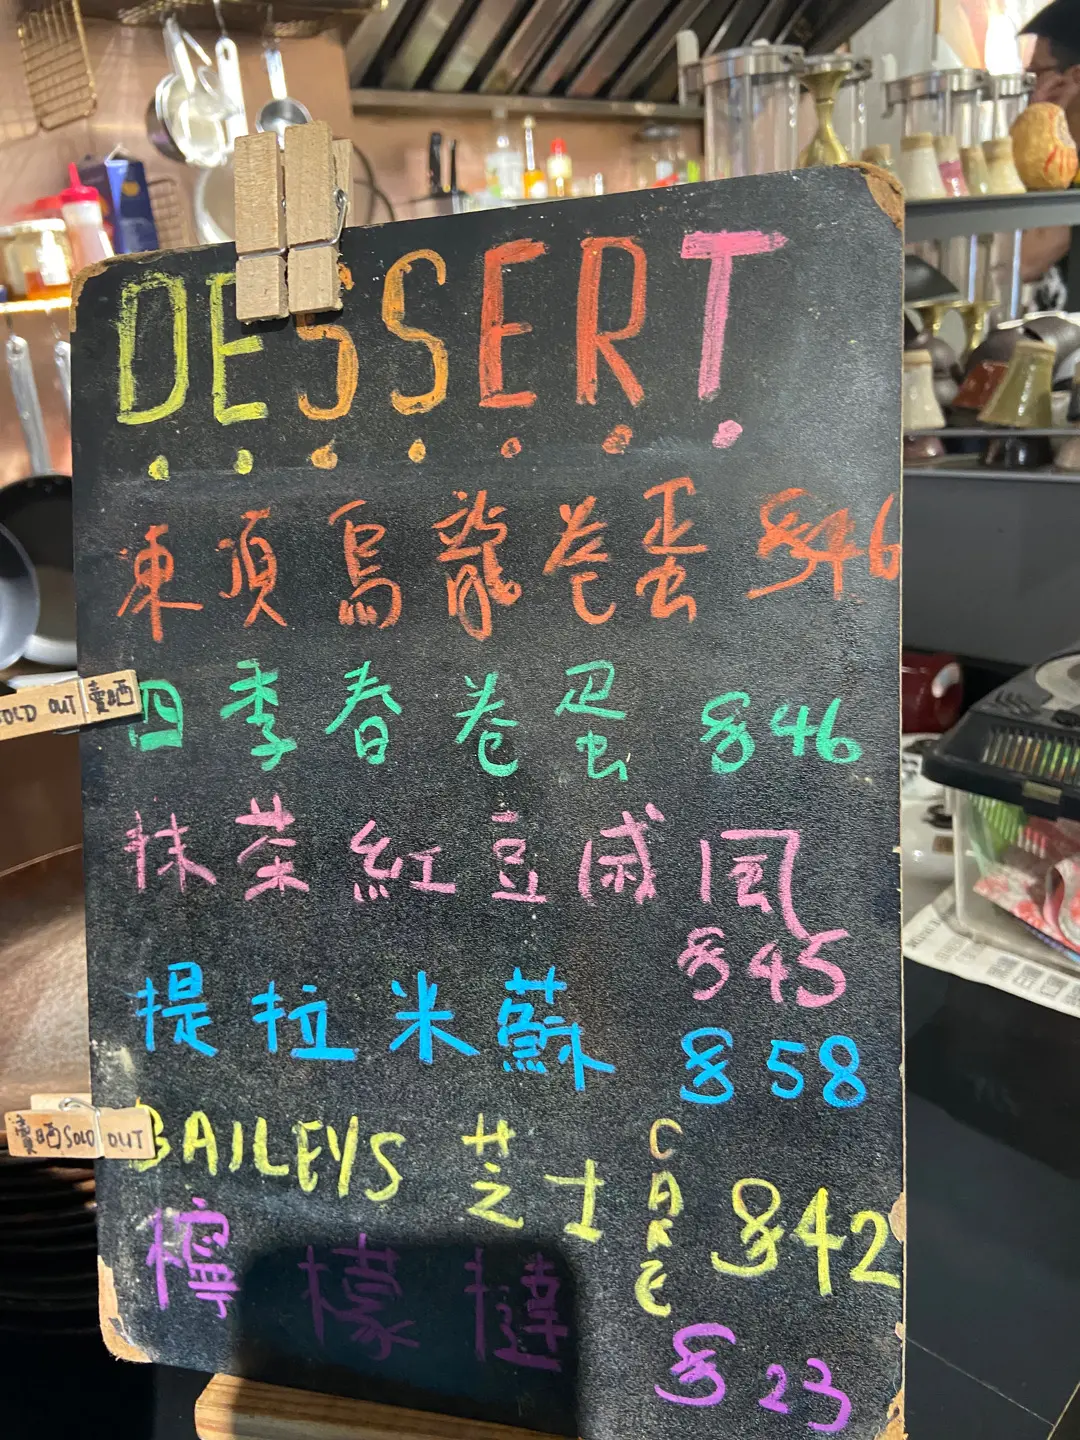 DESSERT
凍頂烏龍卷蛋 $46
SOLD OUT 賣晒
四季春卷蛋 $46
抹茶紅豆戚風
$45
提拉米蘇 $58
賣晒 SOLD OUT
BAILEYS 芝士 CAKE $42
檸檬撻 $23